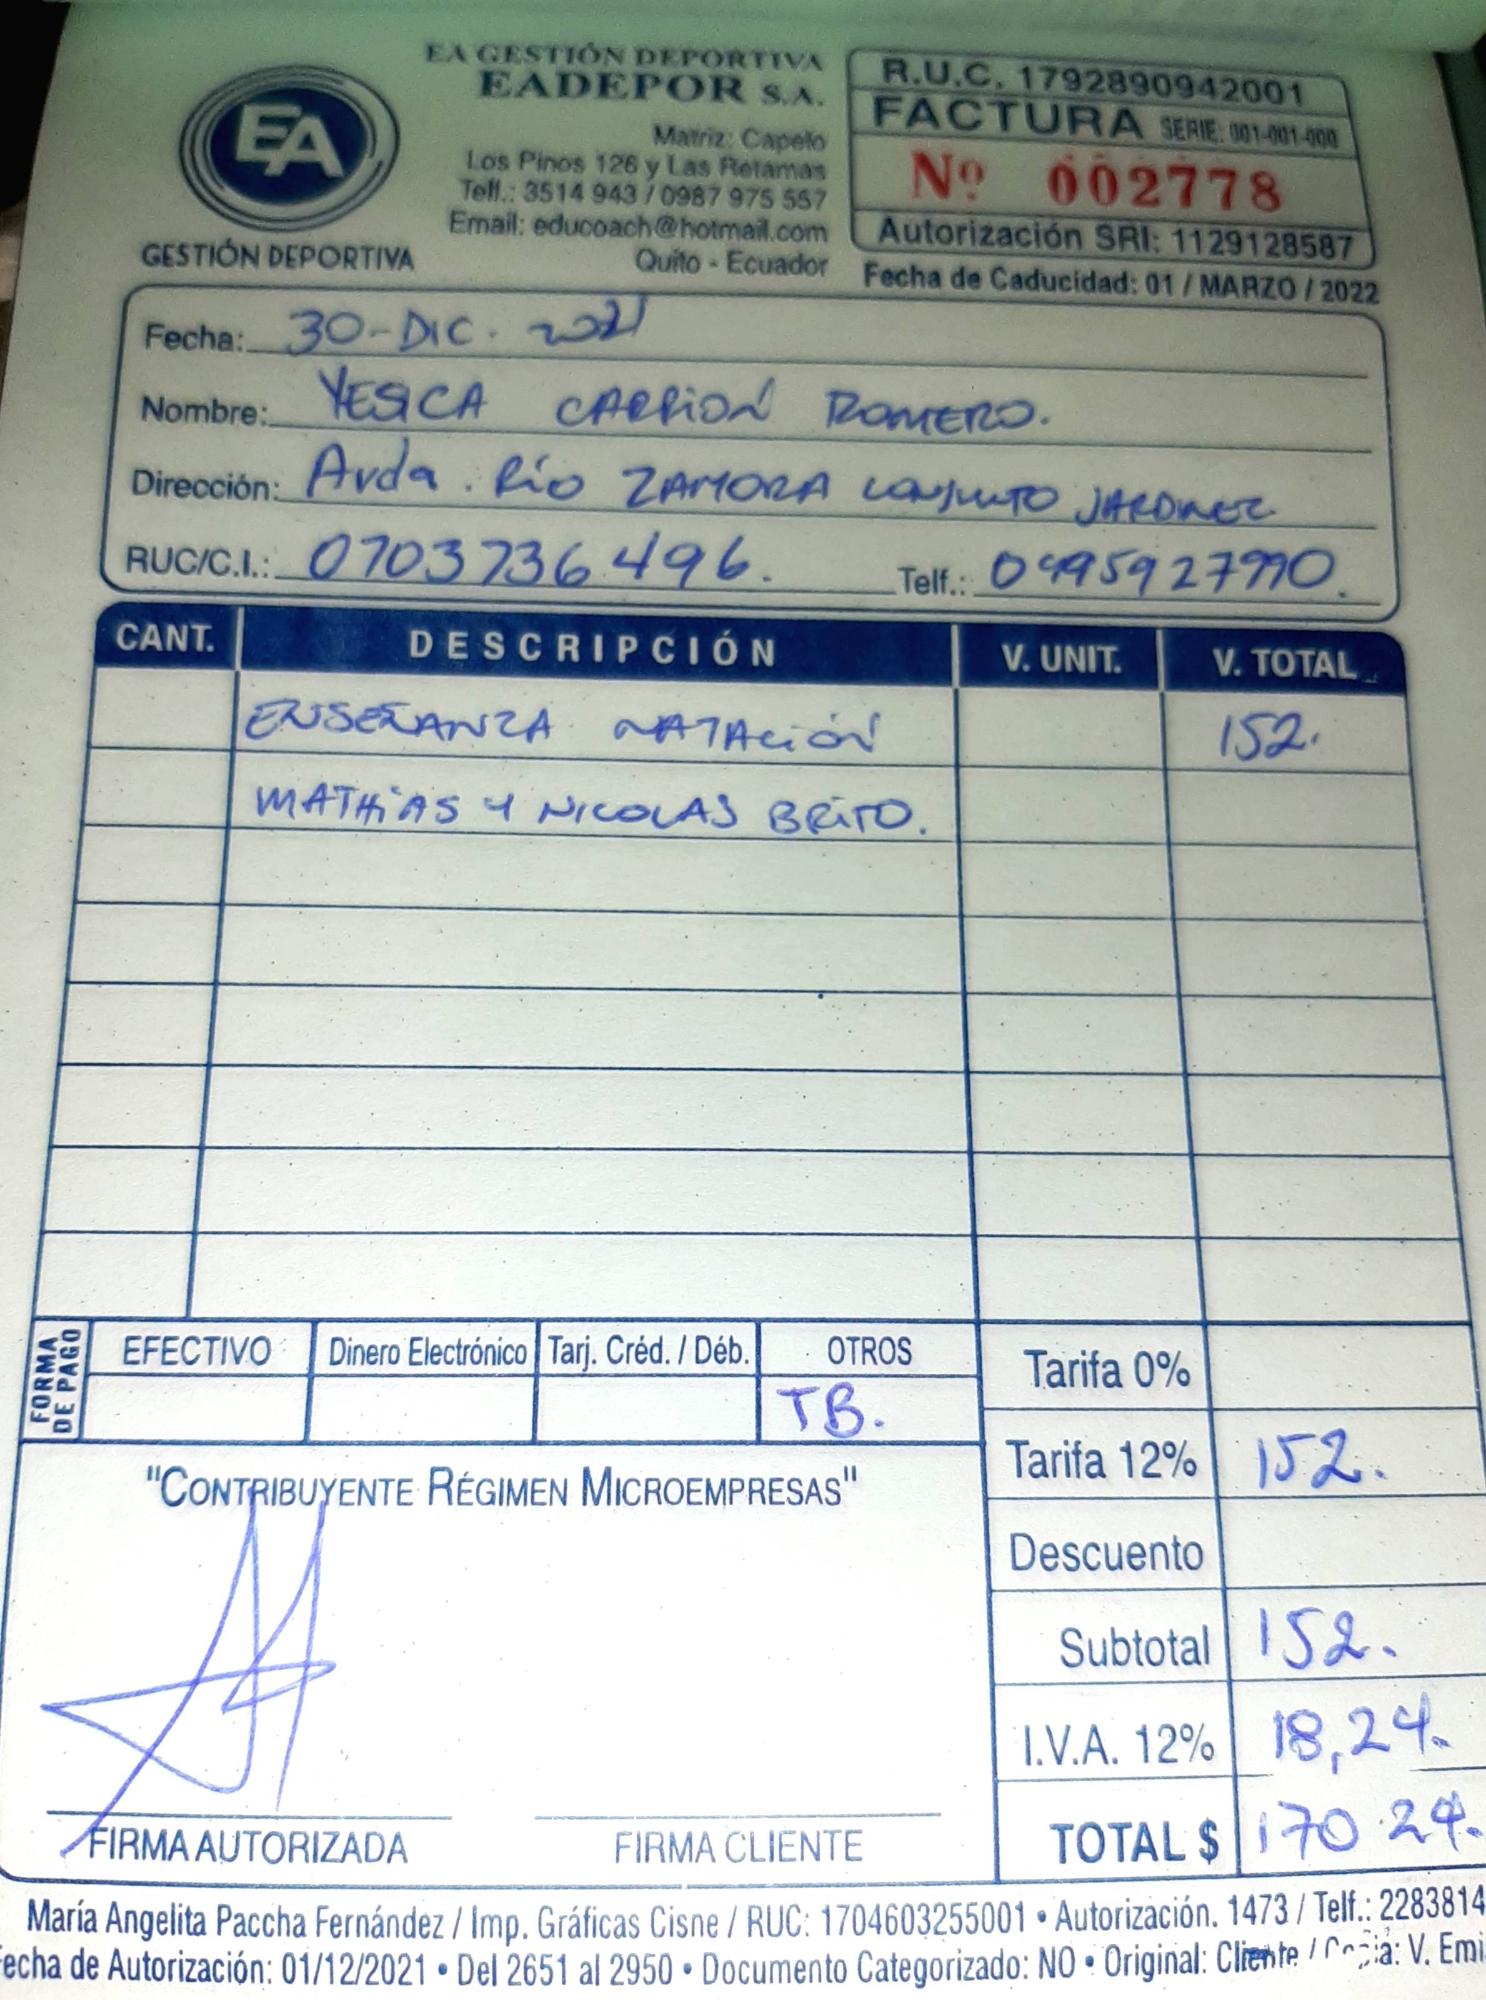 EA GESTIÓN DEPORTIVA
EADEPOR S.A.
EA
GESTIÓN DEPORTIVA
Matriz: Capelo
Los Pinos 126 y Las Retamas
Telf.: 3514 943 / 0987 975 557
Email: educoach@hotmail.com
Quito - Ecuador
R.U.C. 1792890942001
FACTURA SERIE: 001-001-000
Nº 002778
Autorización SRI: 1129128587
Fecha de Caducidad: 01 / MARZO / 2022
Fecha: 30-DIC. 2021
Nombre: YESICA CARRIÓN ROMERO.
Dirección: Avda. Río ZAMORA CONJUNTO JARDINEZ
RUC/C.I.: 0703736496. Telf.: 0995927990.
CANT. DESCRIPCIÓN V. UNIT. V. TOTAL
ENSEÑANZA NATACIÓN 152.
MATHiAS Y NICOLAS BRITO.
FORMA DE PAGO
EFECTIVO Dinero Electrónico Tarj. Créd. / Déb. OTROS
TB.
Tarifa 0%
Tarifa 12% 152.
Descuento
Subtotal 152.
I.V.A. 12% 18,24.
TOTAL $ 170 24.
"CONTRIBUYENTE RÉGIMEN MICROEMPRESAS"
FIRMA AUTORIZADA FIRMA CLIENTE
María Angelita Paccha Fernández / Imp. Gráficas Cisne / RUC: 1704603255001 • Autorización. 1473 / Telf.: 2283814
echa de Autorización: 01/12/2021 • Del 2651 al 2950 • Documento Categorizado: NO • Original: Cliente / Copia: V. Emi